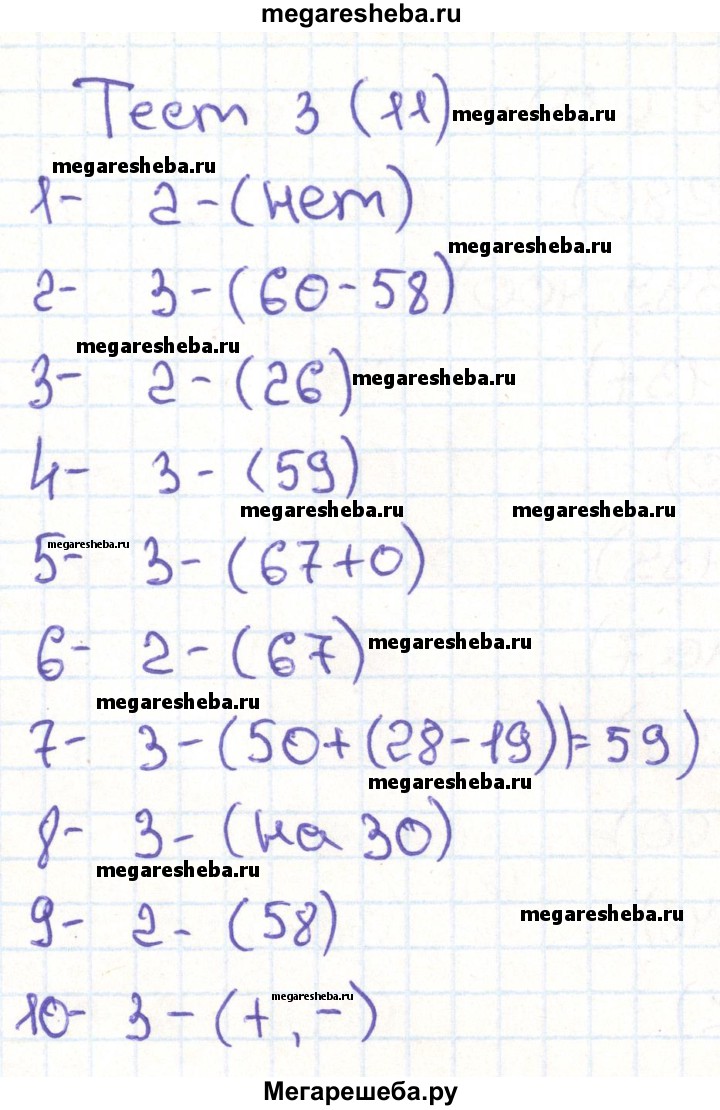 megaresheba.ru
Тест 3 (11) megaresheba.ru
megaresheba.ru
1- 2-(нет)
megaresheba.ru
2- 3-(60-58)
megaresheba.ru
3- 2-(26) megaresheba.ru
4- 3-(59)
megaresheba.ru megaresheba.ru
megaresheba.ru
5- 3-(67+0)
6- 2-(67) megaresheba.ru
megaresheba.ru
7- 3-(50+(28-19)=59)
megaresheba.ru
8- 3-(на 30)
megaresheba.ru
9- 2-(58) megaresheba.ru
megaresheba.ru
10- 3-(+,-)
Мегарешеба.ру